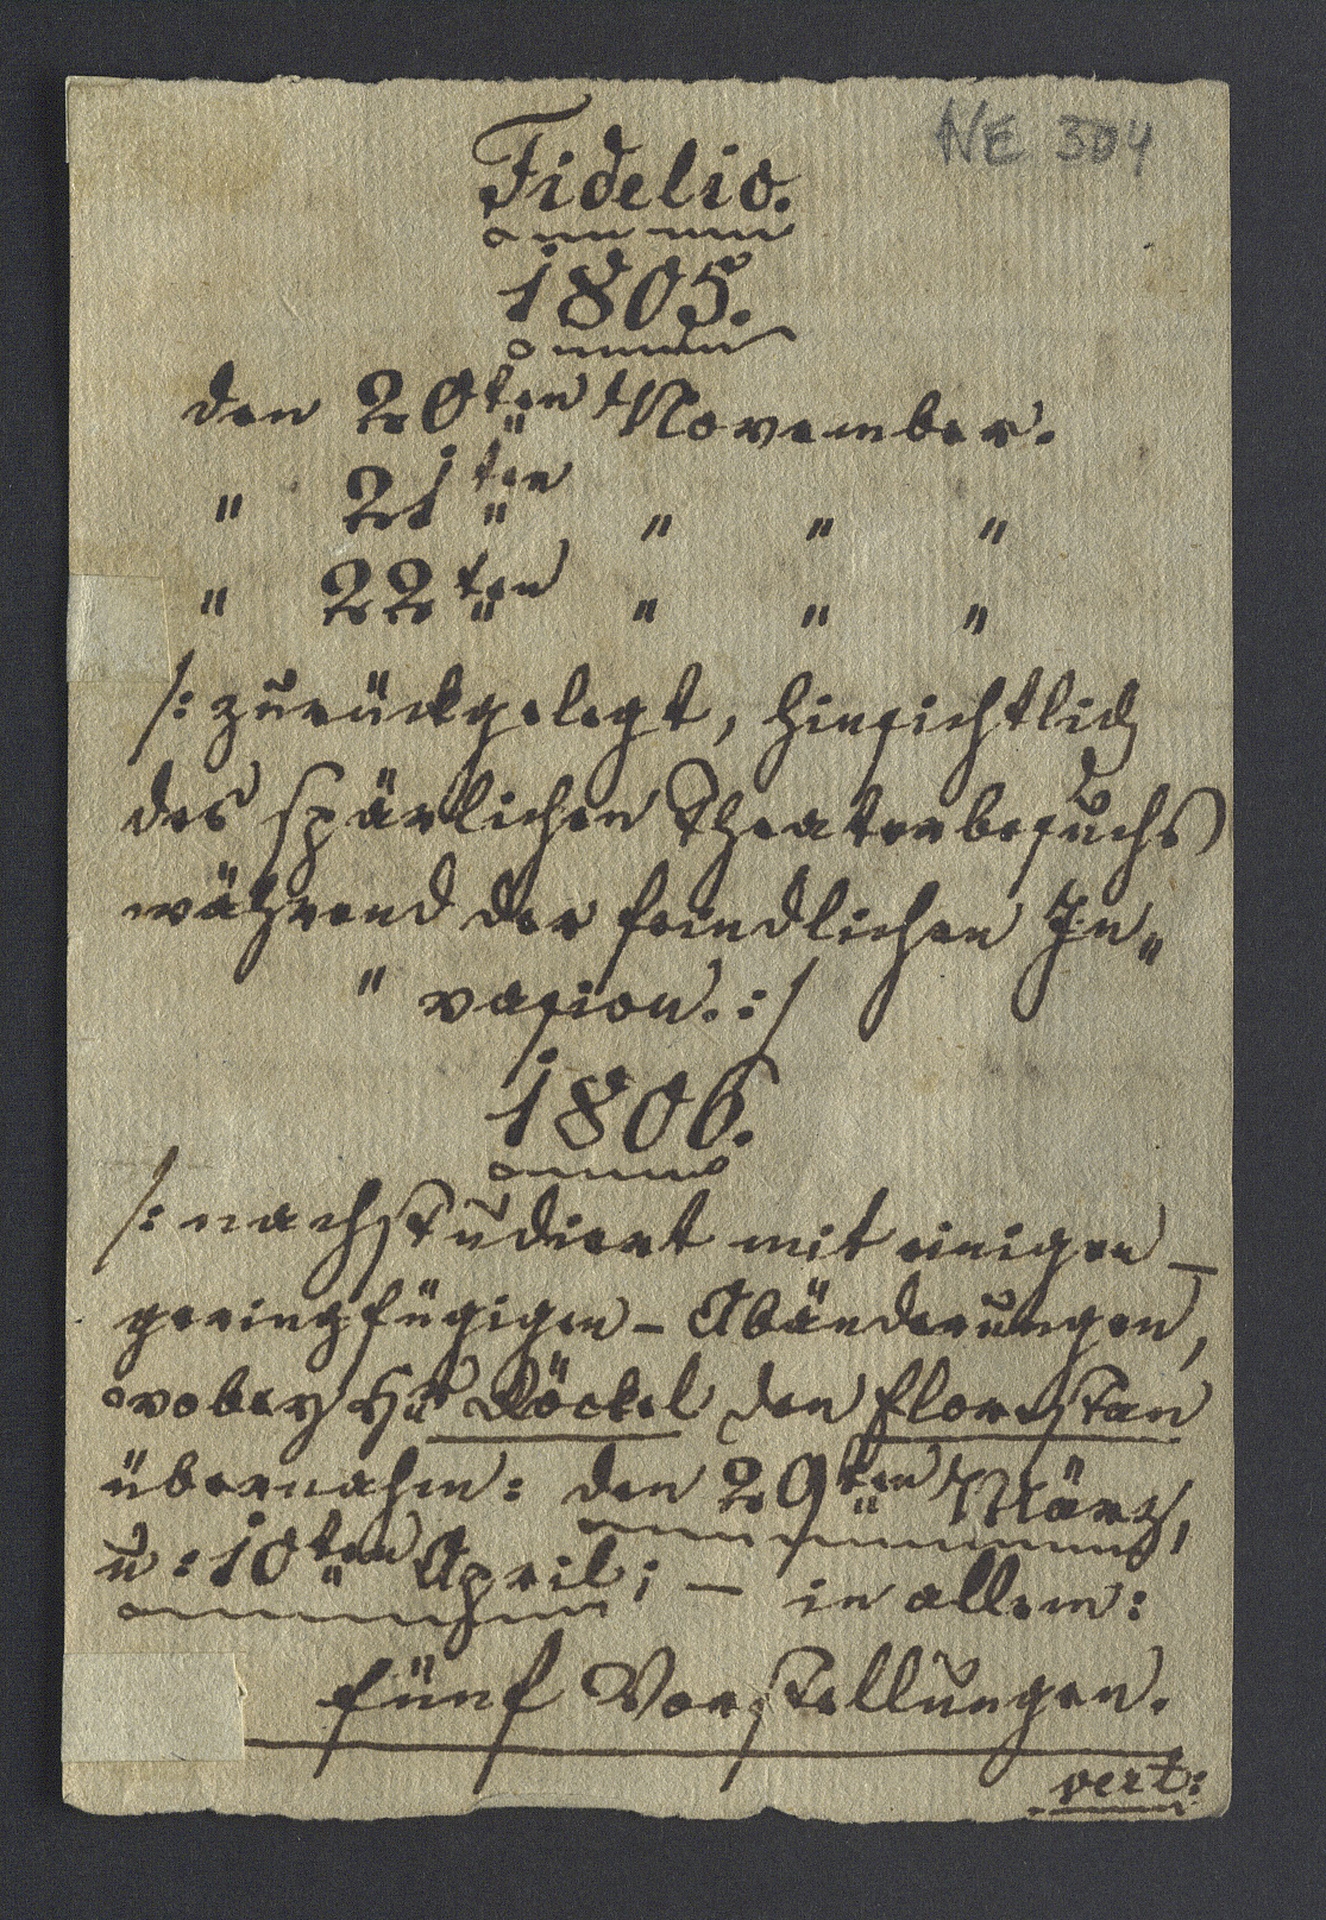 NE 304
Fidelio.
1805.
den 20ten November.
" 21ten " " "
" 22ten " " "
/: zurückgelegt, hinsichtlich
des spärlichen Theaterbesuchs
während der feindlichen In„
" vasion. :/
1806.
/: nachstudiert mit einigen –
geringfügigen – Abänderungen,
wobey Hr. Röckel den Florestan
übernahm: den 29ten März,
u: 10ten April; – in allem:
fünf Vorstellungen.
vert: